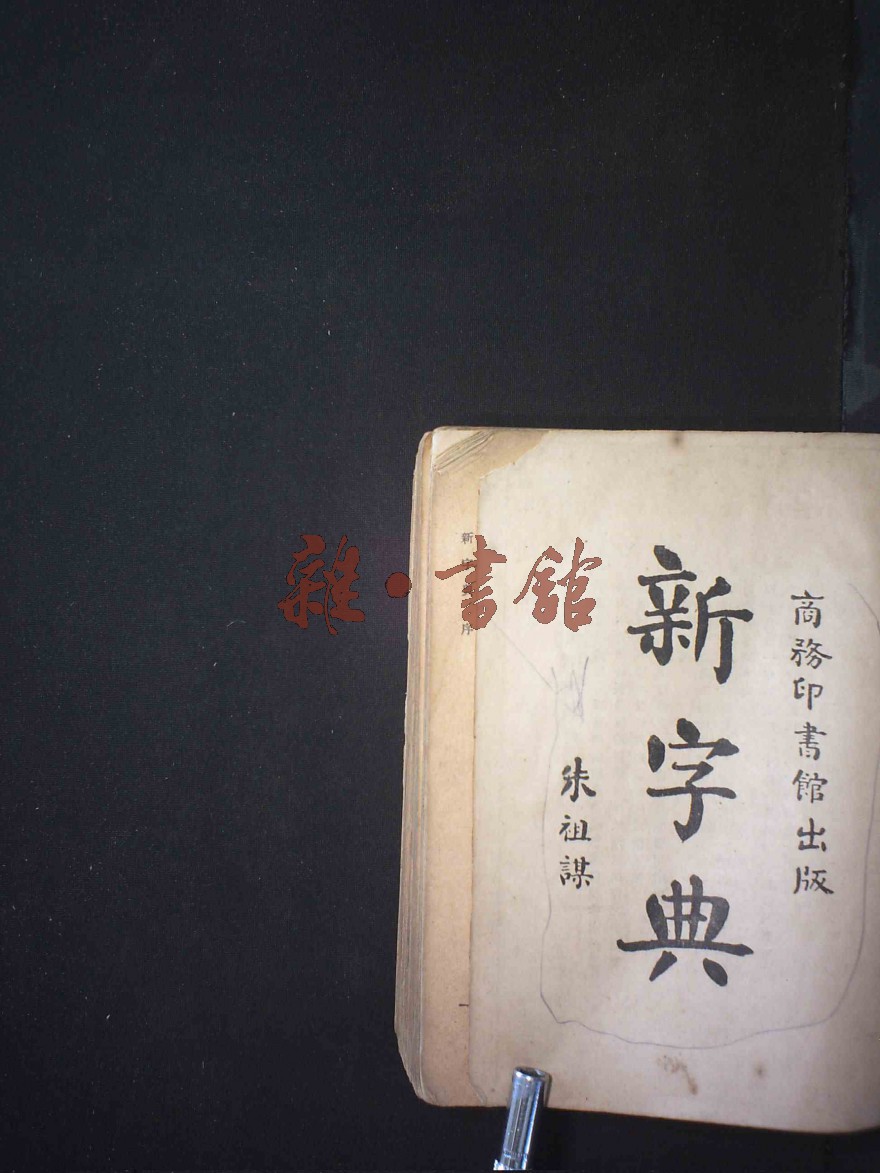 商務印書館出版
新字典
朱祖謀
新字典序
雜·書館